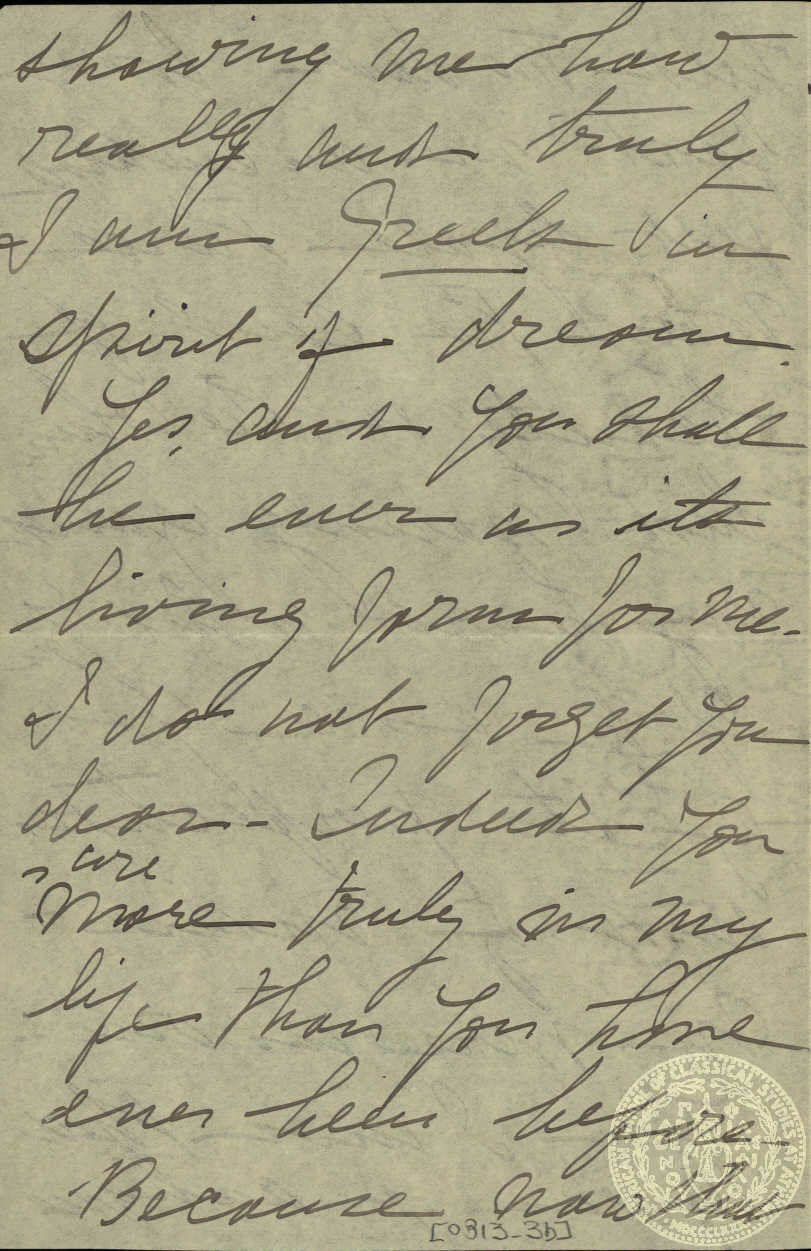 showing me how
really and truly
I am Greek in
spirit & dream.
Yes, and you shall
be ever as its
living form for me -
I do not forget you
dear - Indeed you
are
more truly in my
life than you have
ever been before -
Because now that
[0313_3b]